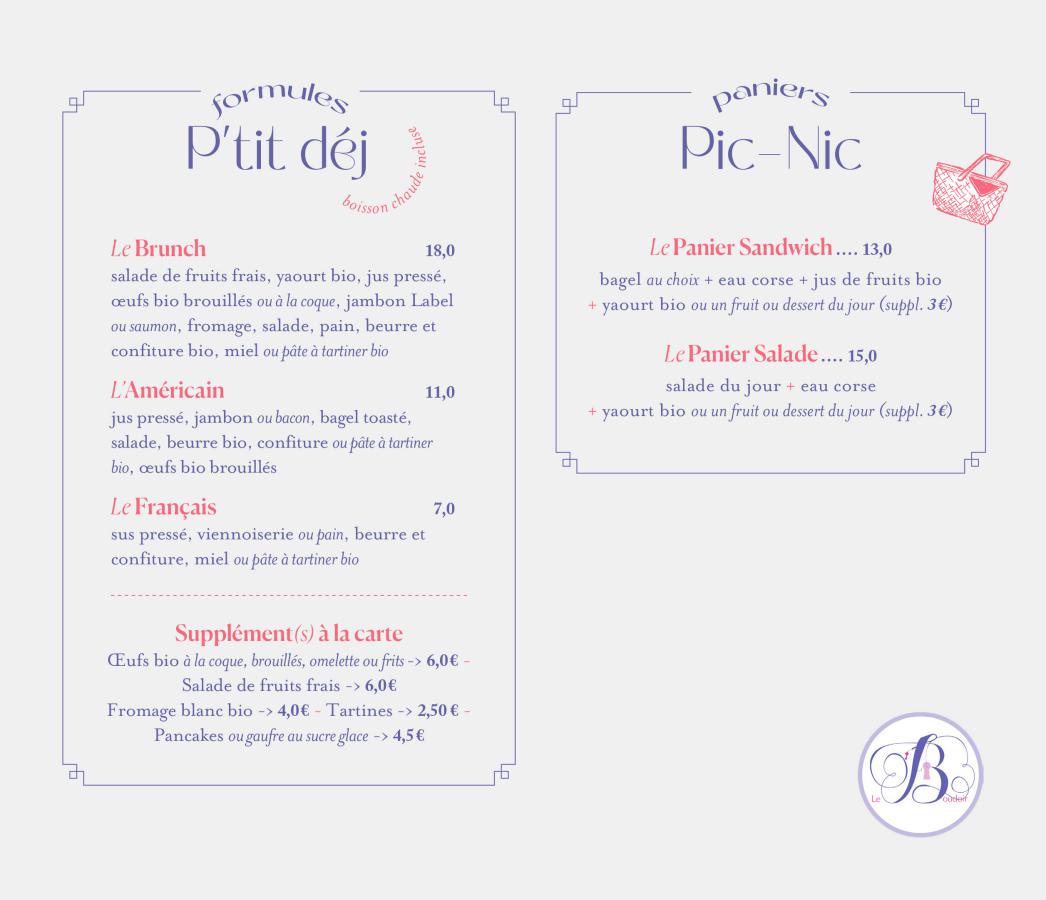 formules
P'tit déj
boisson chaude incluse
Le Brunch 18,0
salade de fruits frais, yaourt bio, jus pressé,
œufs bio brouillés ou à la coque, jambon Label
ou saumon, fromage, salade, pain, beurre et
confiture bio, miel ou pâte à tartiner bio
L'Américain 11,0
jus pressé, jambon ou bacon, bagel toasté,
salade, beurre bio, confiture ou pâte à tartiner
bio, œufs bio brouillés
Le Français 7,0
sus pressé, viennoiserie ou pain, beurre et
confiture, miel ou pâte à tartiner bio
Supplément(s) à la carte
Œufs bio à la coque, brouillés, omelette ou frits -> 6,0€ -
Salade de fruits frais -> 6,0€
Fromage blanc bio -> 4,0€ - Tartines -> 2,50€ -
Pancakes ou gaufre au sucre glace -> 4,5€
paniers
Pic-Nic
Le Panier Sandwich .... 13,0
bagel au choix + eau corse + jus de fruits bio
+ yaourt bio ou un fruit ou dessert du jour (suppl. 3€)
Le Panier Salade .... 15,0
salade du jour + eau corse
+ yaourt bio ou un fruit ou dessert du jour (suppl. 3€)
Le Boudoir